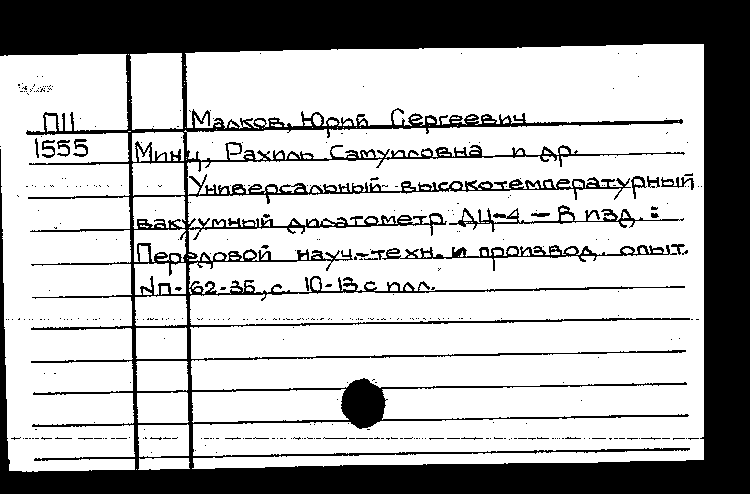 П11 Малков, Юрий Сергеевич
1555 Минц, Рахиль Самуиловна и др.
Универсальный высокотемпературный
вакуумный дилатометр ДЦ-4. – В изд.:
Передовой науч.-техн. и производ. опыт.
№п-62-35, с. 10-13 с илл.